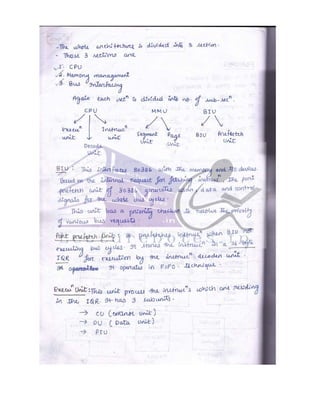 - The whole architecture is divided into 3 section.
- Those 3 sections are
1. CPU
2. Memory management
3. Bus Interfacing
Again each secⁿ is divided into no. of sub-secⁿ.
CPU MMU BIU
Execuⁿ unit Instrucⁿ unit Segment unit Page unit BIU Prefetch unit
Decode
unit
BIU : This interfaces 80386 with the memory and I/O devices
based on the internal request for fetching instrucⁿ, the
prefetch unit of 80386 generates data and control
signals for the whole bus cycle.
This unit has a priority checker to resolve the priority
of various bus requests
prefetch unit : It instrucⁿ when BIU not
executing bus cycles. It stores the instrucⁿ in a
IQR for execution by the instrucⁿ decoder unit.
It operates in FIFO technique.
Execuⁿ Unit : This unit process the instrucⁿs which are residing
in the IQR. It has 3 subunits.
→ CU (control unit)
→ DU (Data unit)
→ PTU